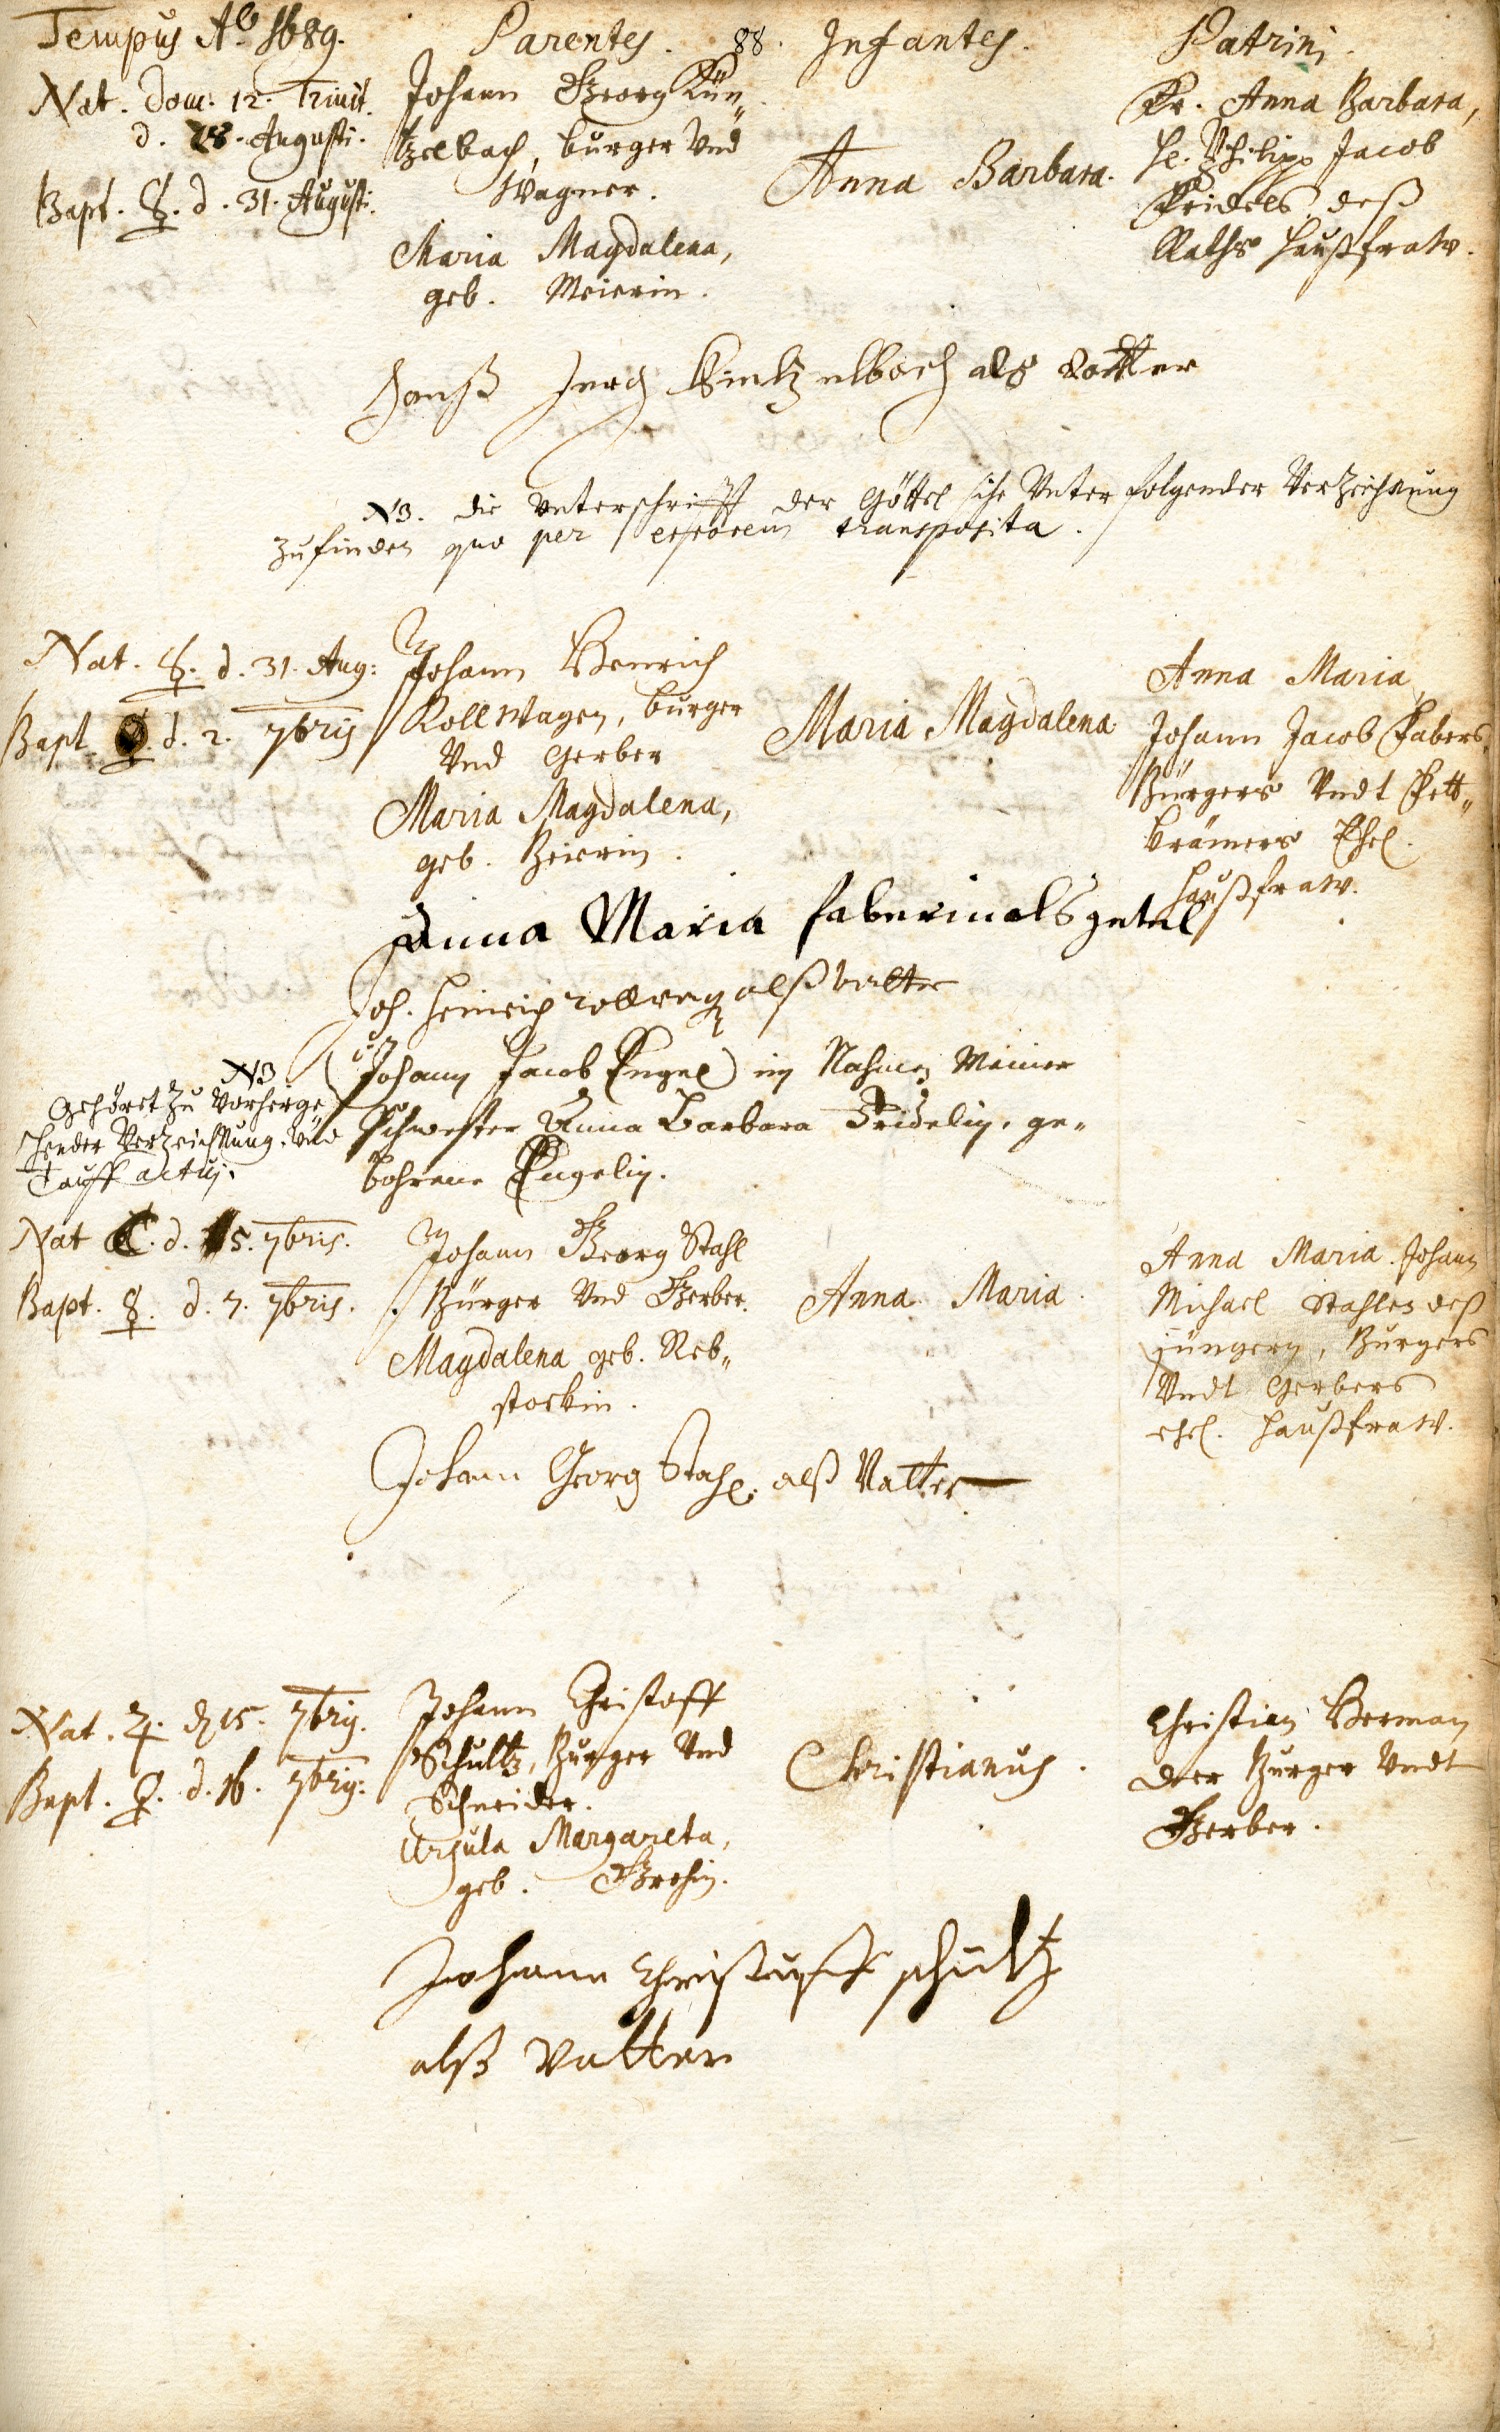 Tempus Aō 1689. Parentes. 88. Infantes. Patrini.
Nat. Dom: 12. Trinit.
d. 28. Augusti.
Bapt. ☿. d. 31. Augusti.
Johann Georg Kün„
tzelbach, burger Vnd
Wagner.
Maria Magdalena,
geb. Meierin.
Anna Barbara.
Fr. Anna Barbara,
H. Philipp Jacob
Fridels, deß
Raths Haußfraw.
Hanß Jerg Kintzelbach als Vatter
NB. die Vnterschrifft der Göttel sihe Vnter folgender Verzeichnung
zufinden quo per errorem transposita.
Nat. ☿. d. 31. Aug:
Bapt. ♀. d. 2. 7bris
Johann Henrich
Rollwagen, burger
Vnd Gerber
Maria Magdalena,
geb. Beierin.
Maria Magdalena
Anna Maria,
Johann Jacob Fabers,
Bürgers Vndt Fett„
krämers Ehel.
Haußfraw.
Anna Maria faberin als getel
Joh. Heinrich rollwag alß vatter
NB
Gehöret zu Vorherge„
hender Verzeichnung, Vnd
Tauff actuj.
Johann Jacob Engel im Nahmen Meiner
Schwester Anna Barbara Fridelin, ge„
bohrene Engelin.
Nat. ☾. d. 5. 7bris.
Bapt. ☿. d. 7. 7bris.
Johann Georg Stahl
Bürger Vnd Gerber.
Magdalena geb. Reb„
stockin.
Anna Maria.
Anna Maria. Johann
Michael Stahlen deß
jüngern, Burgers
Vndt Gerbers
ehel. Haußfraw.
Johann Georg Stahl. alß Vatter
Nat. ♃. d. 15. 7bris.
Bapt. ♀. d. 16. 7bris:
Johann Christoff
Schultz, Burger Vnd
Schneider.
Ursula Margareta,
geb.
Christianus.
Christian
der Burger Vndt
Gerber.
Johann Christuff schultz
alß Vatter